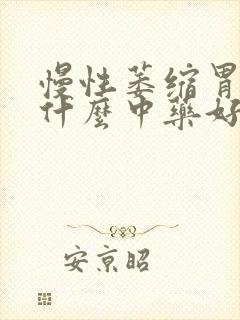 慢性萎缩胃
什麼中藥好
安京昭